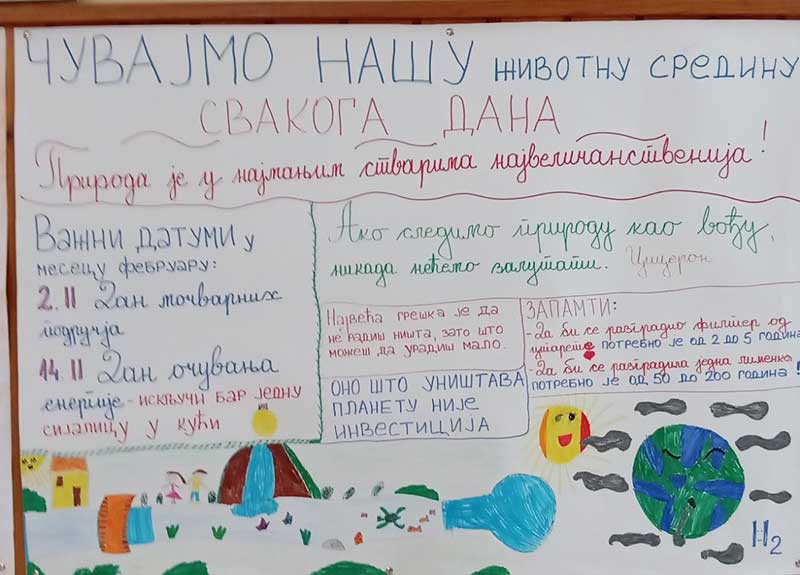 ЧУВАЈМО НАШУ ЖИВОТНУ СРЕДИНУ
СВАКОГА ДАНА
Природа је у најмањим стварима највеличанственија!
ВАЖНИ ДАТУМИ У
МЕСЕЦУ ФЕБРУАРУ:
2.II Дан мочварних
подручја
14.II Дан очувања
енергије - ИСКЉУЧИ БАР ЈЕДНУ
СИЈАЛИЦУ У КУЋИ
Ако следимо природу као вођу,
никада нећемо залутати. Цицерон
НАЈВЕЋА ГРЕШКА ЈЕ ДА
НЕ РАДИШ НИШТА, ЗАТО ШТО
МОЖЕШ ДА УРАДИШ МАЛО.
ОНО ШТО УНИШТАВА
ПЛАНЕТУ НИЈЕ
ИНВЕСТИЦИЈА
ЗАПАМТИ:
-Да би се разградио филтер од
цигарете ПОТРЕБНО ЈЕ ОД 2 ДО 5 ГОДИНА
-Да би се разградила једна лименка
ПОТРЕБНО ЈЕ ОД 50 ДО 200 ГОДИНА!
H2